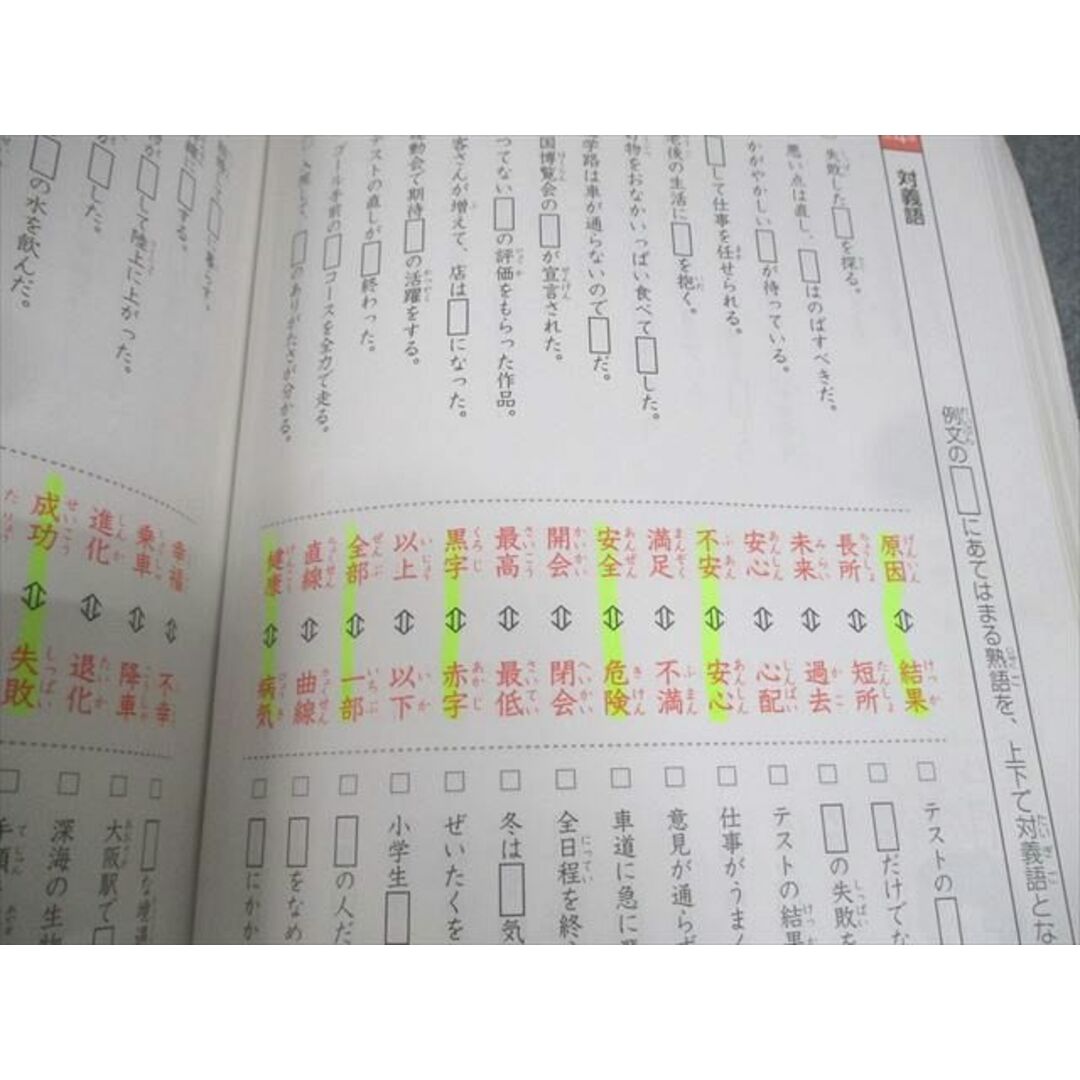 対義語
例文の□にあてはまる熟語を、上下で対義語とな
失敗した□を探る。
悪い点は直し、□はのばすべきだ。
かがやかしい□が待っている。
□して仕事を任せられる。
老後の生活に□を抱く。
物をおなかいっぱい食べて□した。
学路は車が通らないので□だ。
国博覧会の□が宣言された。
つてない□の評価をもらった作品。
客さんが増えて、店は□になった。
動会で期待□の活躍をする。
テストの直しが□終わった。
ゴール手前の□コースを全力で走る。
□のありがたさが分かる。
原因⇔結果
長所⇔短所
未来⇔過去
安心⇔心配
不安⇔安心
満足⇔不満
安全⇔危険
開会⇔閉会
最高⇔最低
黒字⇔赤字
以上⇔以下
全部⇔一部
直線⇔曲線
健康⇔病気
□テストの□
□□だけでな
□□の失敗を
□テストの結果
□仕事がうま
□意見が通らず
□車道に急に
□全日程を終
□冬は□気
□ぜいたくを
□小学生□
□□の人だ
□□をなめ
□□にかか
□に暮らす。
□する。
が□して陸上に上がった。
が□した。
□の水を飲んだ。
幸福⇔不幸
乗車⇔降車
進化⇔退化
成功⇔失敗
□□な境遇
□大阪駅で□
□深海の生物
□手順